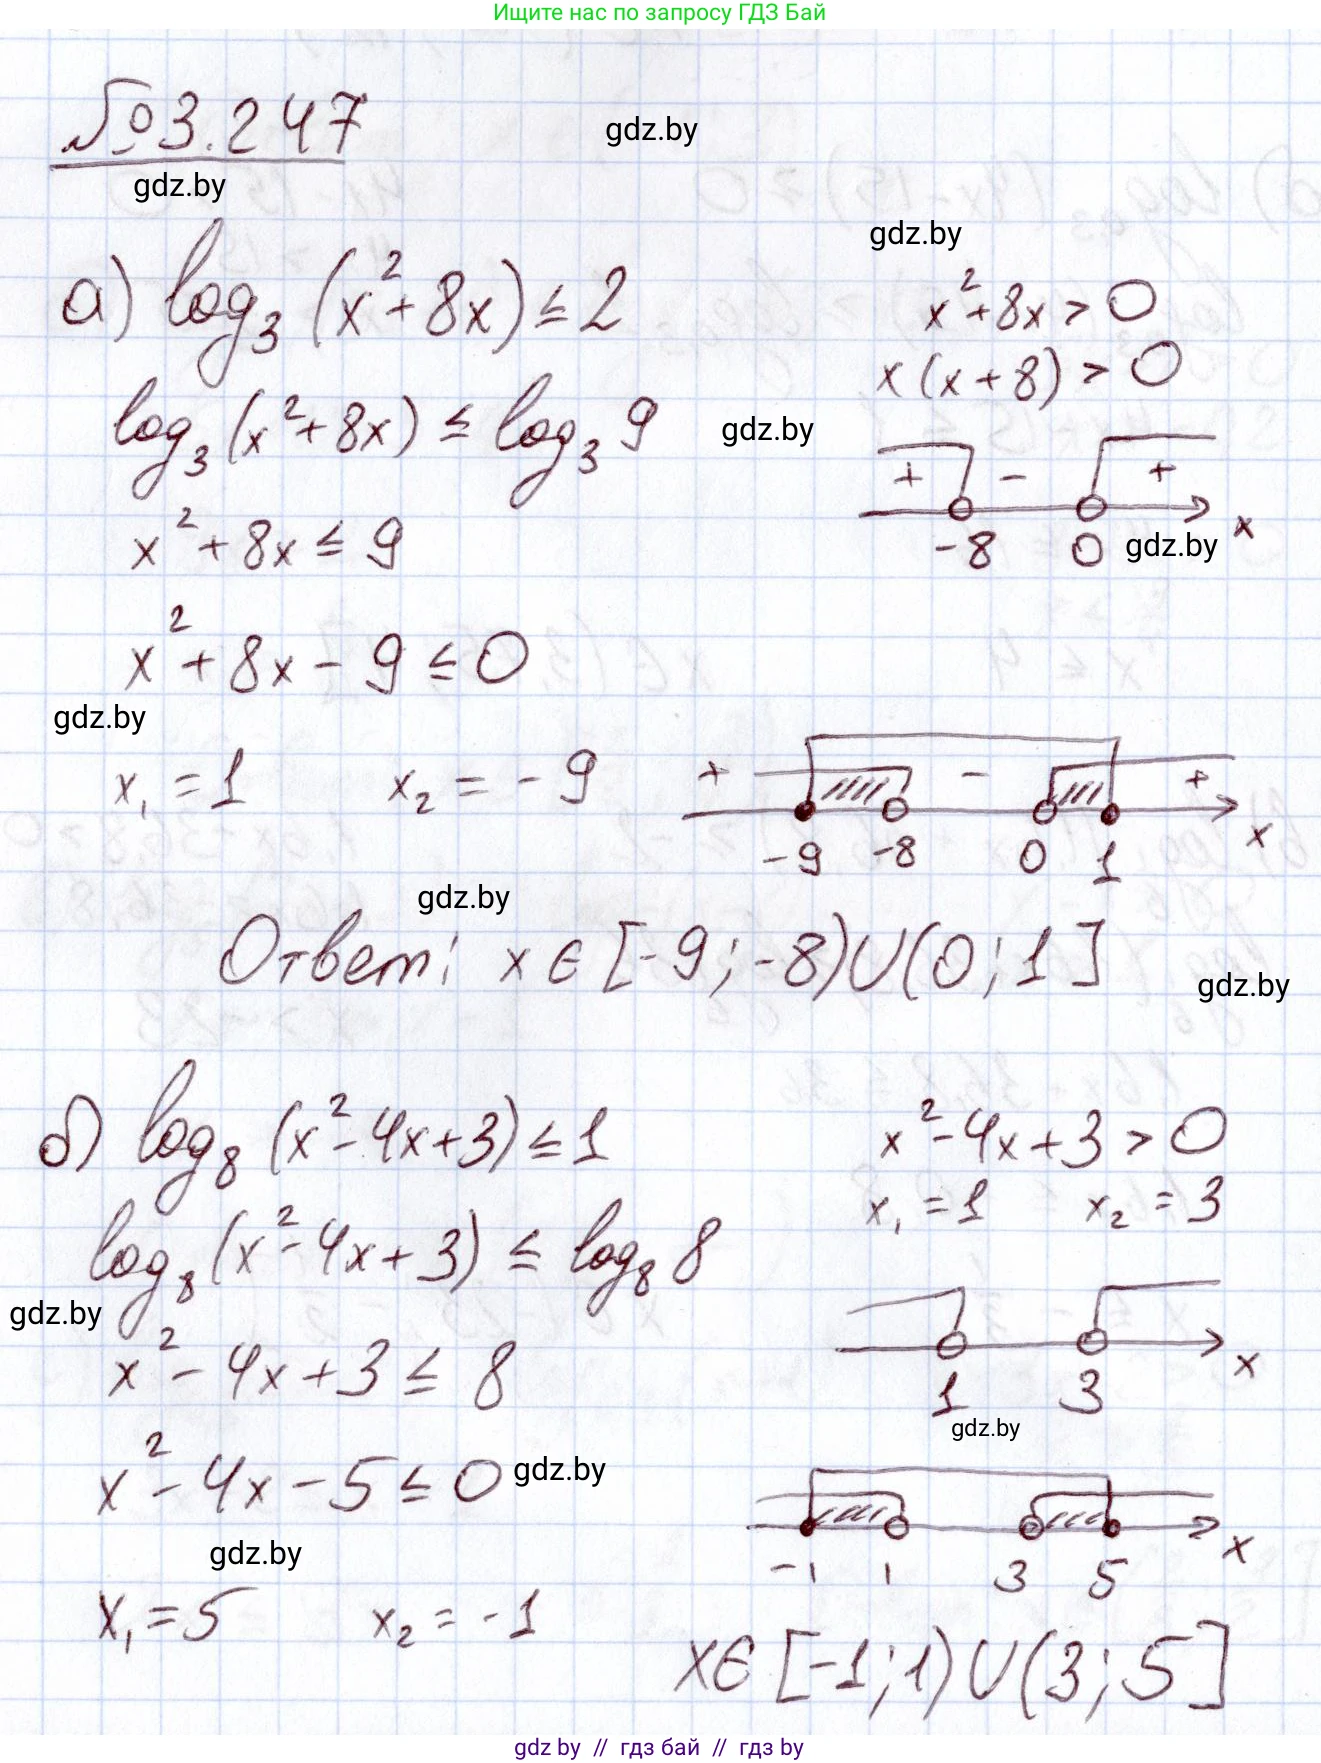 Ищите нас по запросу ГДЗ Бай
№3.247
gdz.by
gdz.by
gdz.by
а) log₃ (x² + 8x) ≤ 2
x² + 8x > 0
x (x + 8) > 0
log₃ (x² + 8x) ≤ log₃ 9
gdz.by
+ - +
-8 0 x
gdz.by
x² + 8x ≤ 9
x² + 8x - 9 ≤ 0
gdz.by
x₁ = 1 x₂ = -9
+ - +
-9 -8 0 1 x
gdz.by
Ответ: x ∈ [-9; -8) ∪ (0; 1]
gdz.by
б) log₈ (x² - 4x + 3) ≤ 1
x² - 4x + 3 > 0
x₁ = 1 x₂ = 3
log₈ (x² - 4x + 3) ≤ log₈ 8
gdz.by
1 3 x
gdz.by
x² - 4x + 3 ≤ 8
x² - 4x - 5 ≤ 0
gdz.by
gdz.by
-1 1 3 5 x
x₁ = 5 x₂ = -1
x ∈ [-1; 1) ∪ (3; 5]
gdz by // гдз бай // гдз by